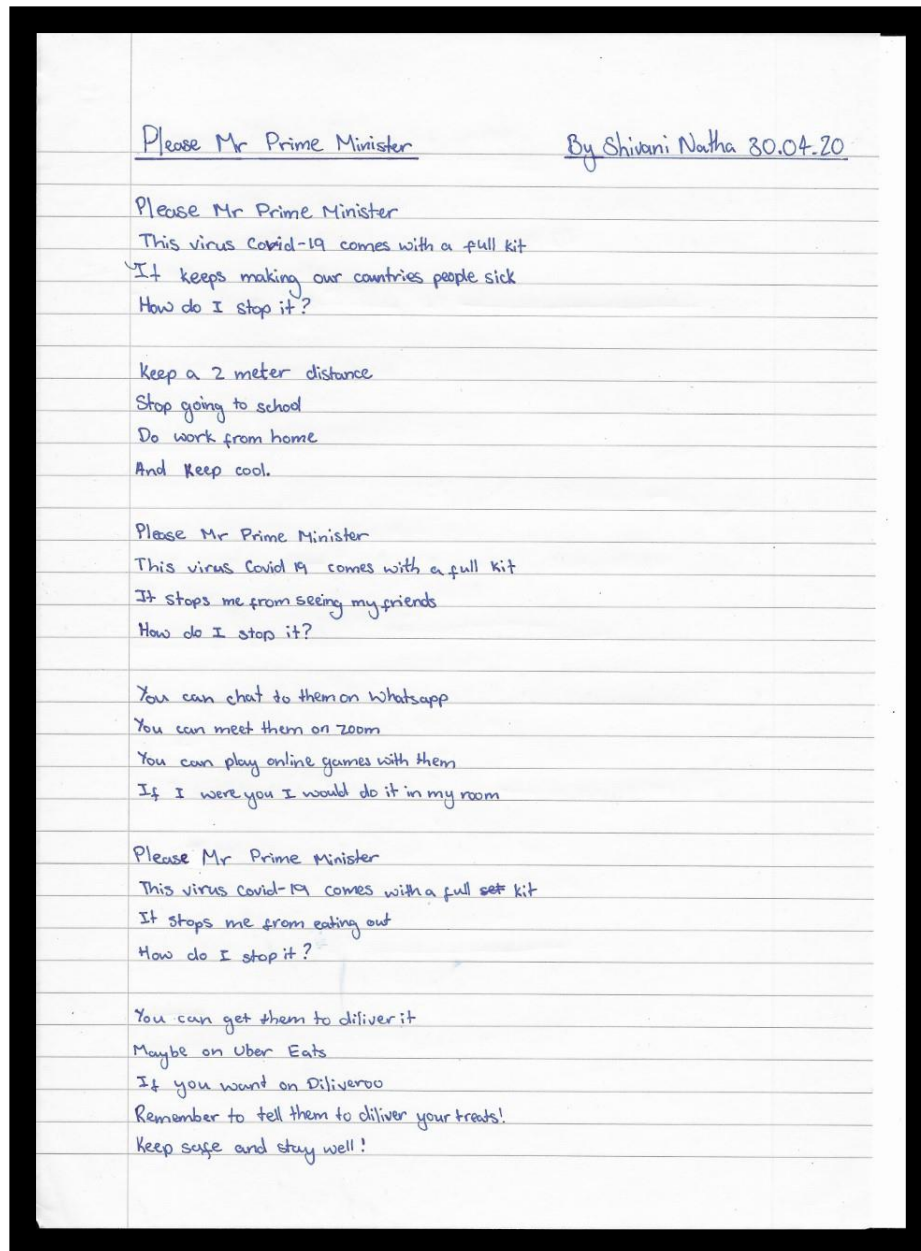 Please Mr Prime Minister By Shivani Natha 30.04.20
Please Mr Prime Minister
This virus Covid-19 comes with a full kit
It keeps making our countries people sick
How do I stop it?
Keep a 2 meter distance
Stop going to school
Do work from home
And Keep cool.
Please Mr Prime Minister
This virus Covid 19 comes with a full kit
It stops me from seeing my friends
How do I stop it?
You can chat to them on Whatsapp
You can meet them on zoom
You can play online games with them
If I were you I would do it in my room
Please Mr Prime Minister
This virus covid-19 comes with a full set kit
It stops me from eating out
How do I stop it?
You can get them to diliver it
Maybe on Uber Eats
If you want on Diliveroo
Remember to tell them to diliver your treats!
Keep safe and stay well!